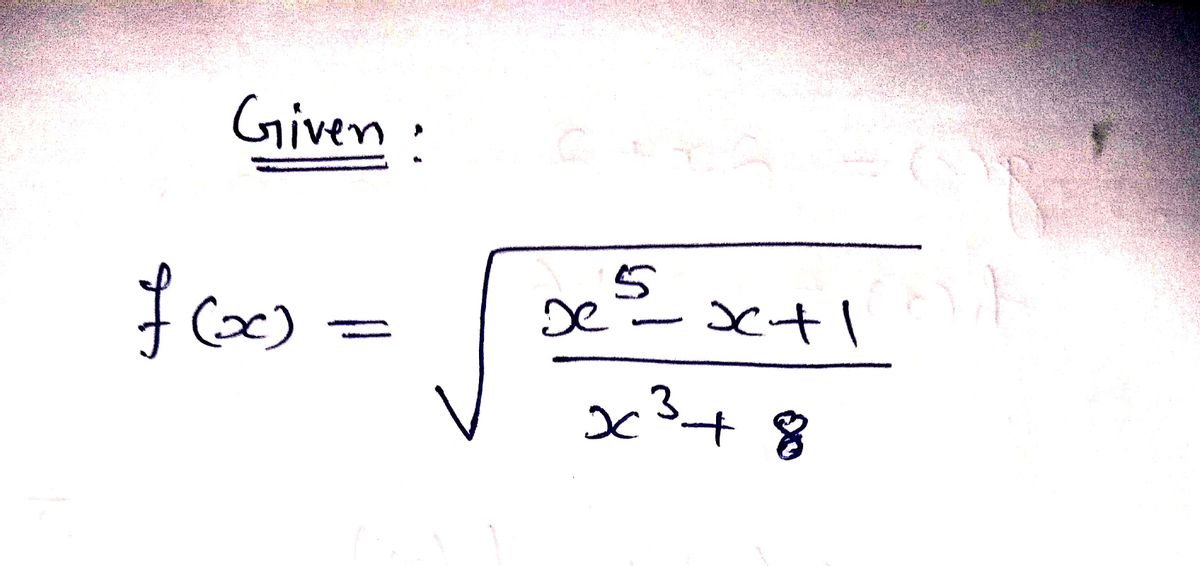 Given :
f(x) = √((x^5 - x + 1)/(x^3 + 8))